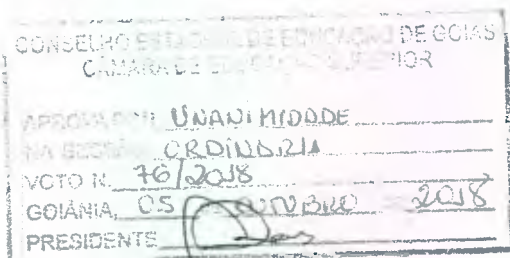 CONSELHO ESTADUAL DE EDUCAÇÃO DE GOIÁS
CÂMARA DE EDUCAÇÃO SUPERIOR
APROVADO POR UNANIMIDADE
NA SESSÃO ORDINÁRIA
VOTO N. 76/2018
GOIÂNIA, 05 2018
PRESIDENTE